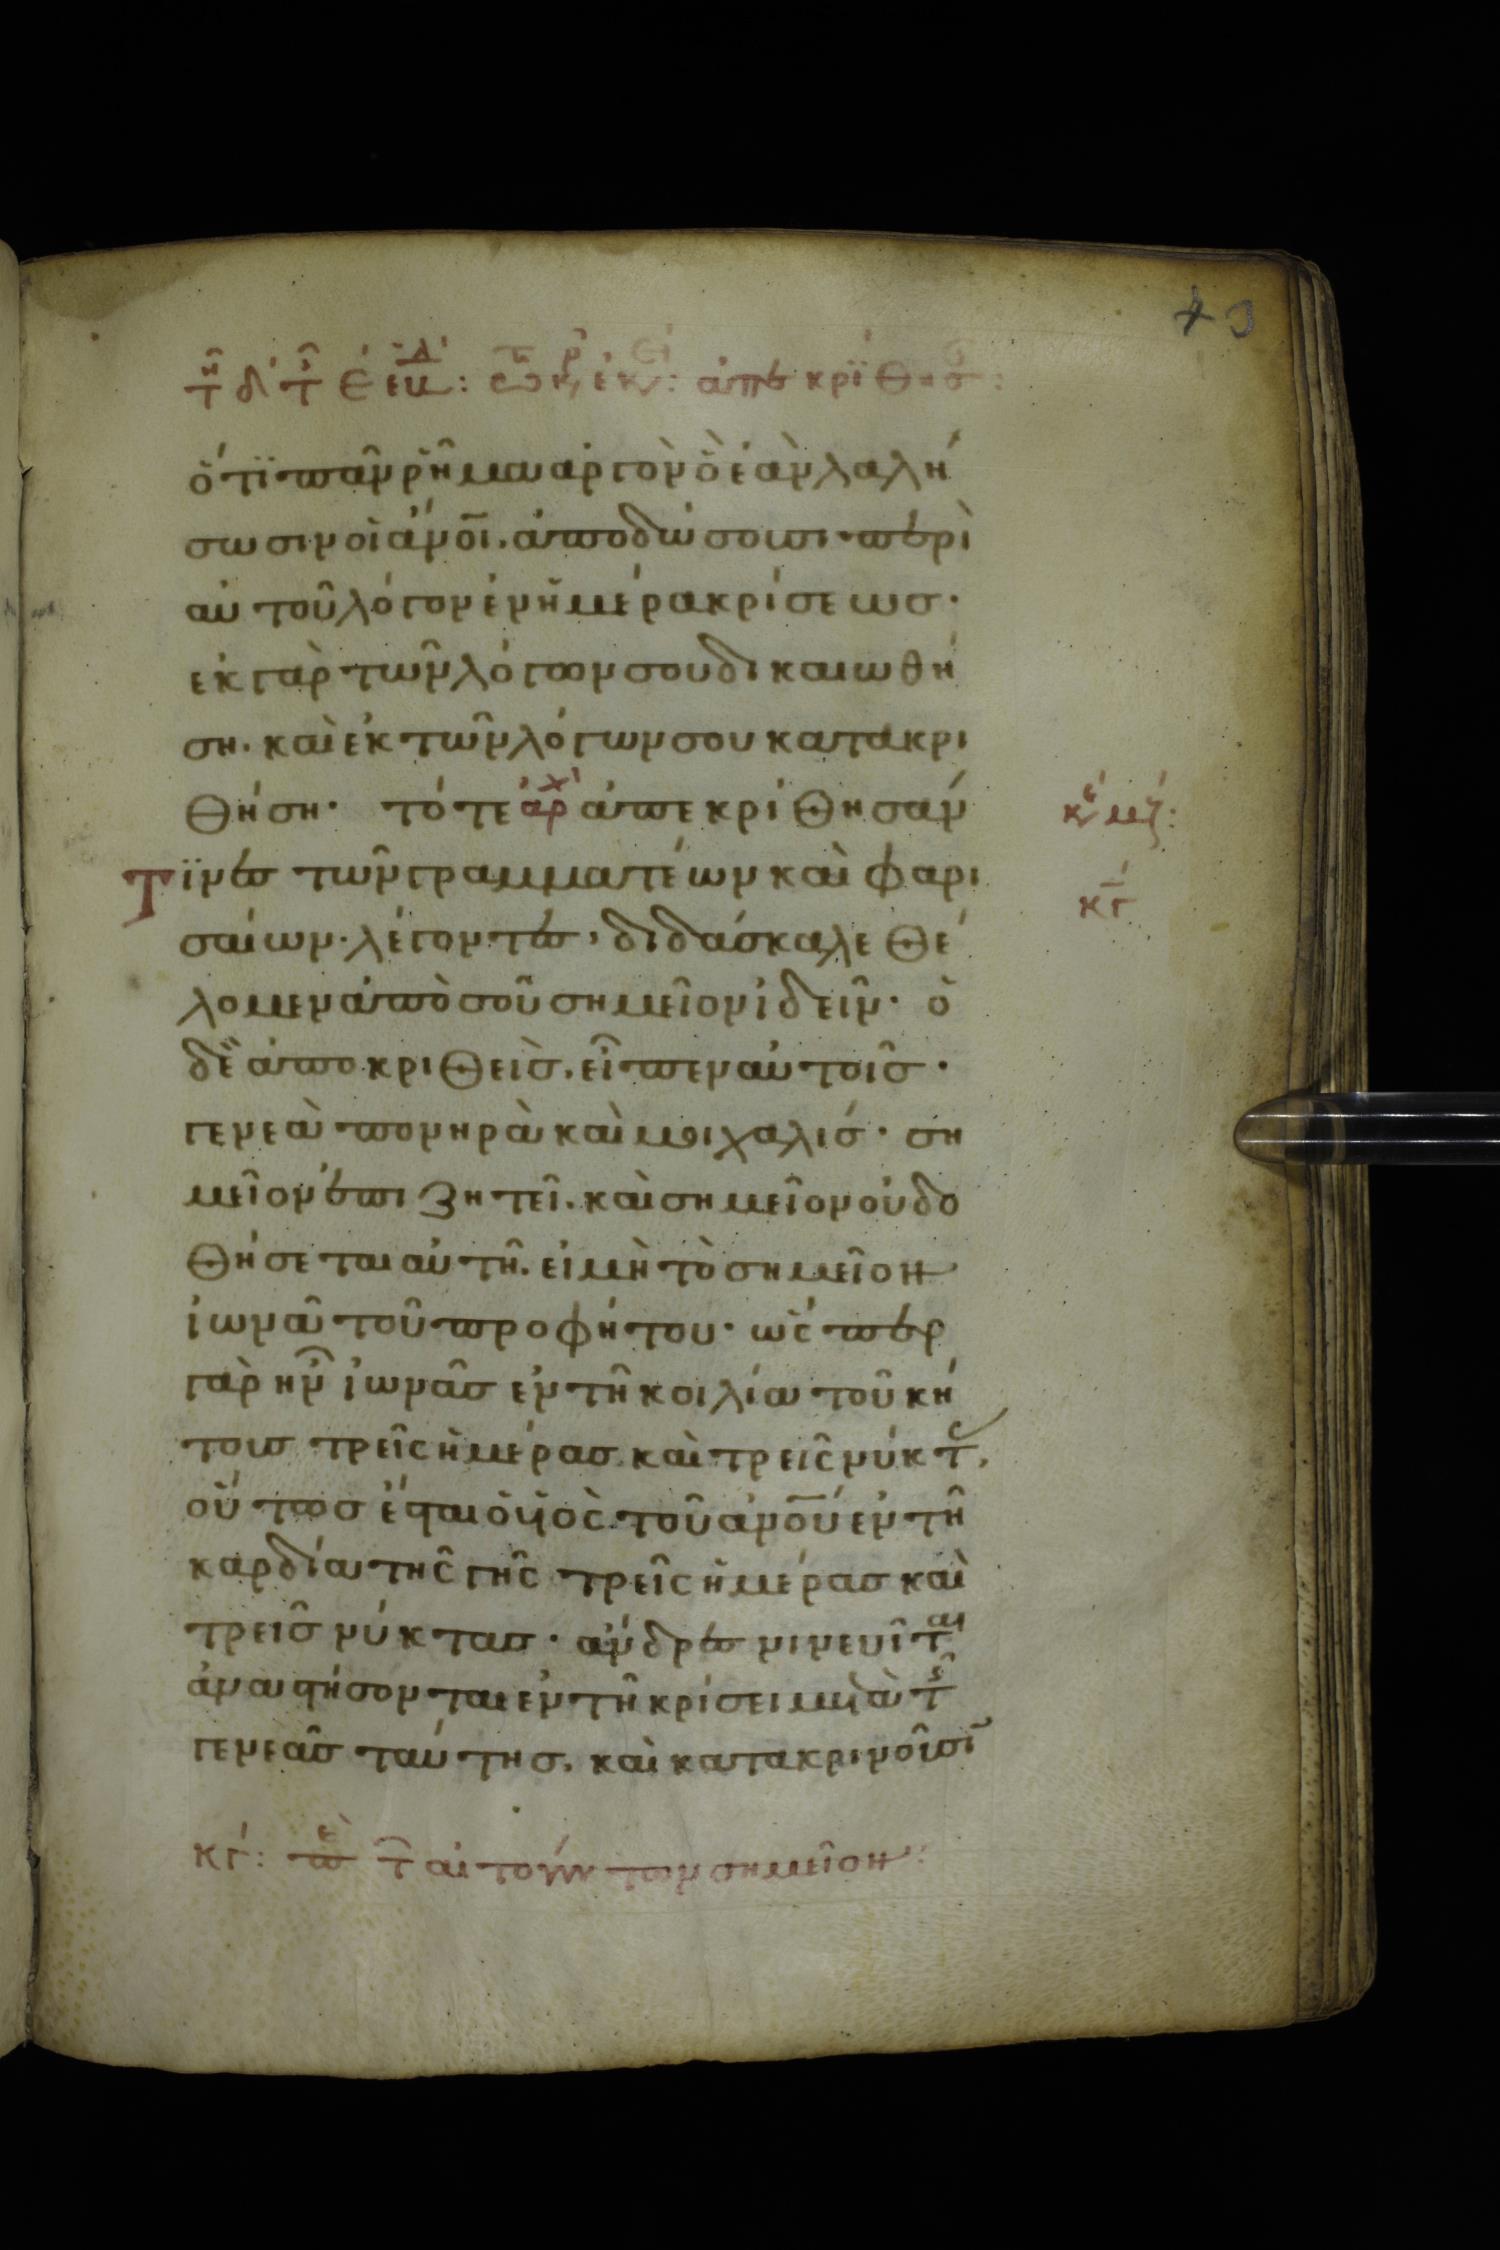 ὅτι πᾶν ῥῆμα ἀργὸν ὃ ἐὰν λαλή
σωσιν οἱ ἄνοι. ἀποδώσουσι περὶ
αὐτοῦ λόγον ἐν ἡμέρα κρίσεως·
ἐκ γὰρ τῶν λόγων σου δικαιωθή
ση. καὶ ἐκ τῶν λόγων σου κατακρι
θήση· τότε ἀρχ ἀπεκρίθησάν
Τϊνες τῶν γραμματέων καὶ φαρι
σαίων· λέγοντες, διδάσκαλε θέ
λομεν ἀπὸ σοῦ σημεῖον ἰδεῖν· ὁ
δὲ ἀποκριθεὶς. εἶπεν αὐτοῖς·
γενεὰ πονηρὰ καὶ μοιχαλίς· ση
μεῖον ἐπιζητεῖ. καὶ σημεῖον οὐ δο
θήσεται αὐτῆ. εἰ μὴ τὸ σημεῖον
ἰωνᾶ τοῦ προφήτου· ὥσπερ
γὰρ ἦν ἰωνᾶς ἐν τῆ κοιλία τοῦ κή
τους τρεῖς ἡμέρας καὶ τρεῖς νύκτ,
οὕτως ἔσται ὁ ὑὸς τοῦ ἀνου ἐν τῆ
καρδία τῆς γῆς τρεῖς ἡμέρας καὶ
τρεῖς νύκτας· ἄνδρες νινευῖται
ἀναστήσονται ἐν τῆ κρίσει μετὰ τῆς
γενεᾶς ταύτης. καὶ κατακρινοῦσιν
κε μζ:
κγ
κγ: πε τ αἰτούντων σημεῖον: